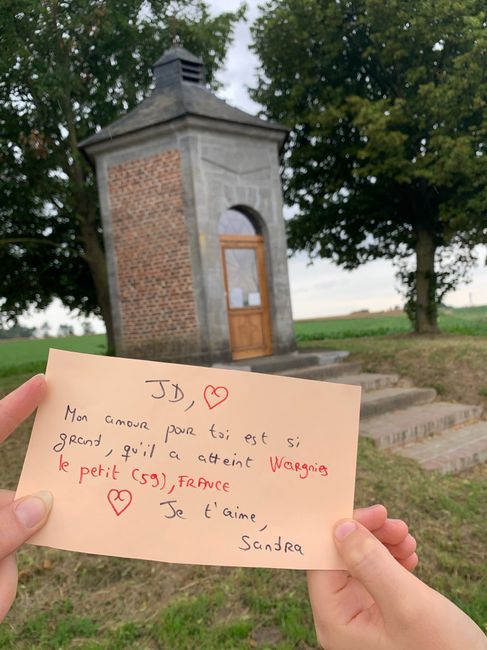 JD, ♡
Mon amour pour toi est si
grand, qu'il a atteint Wargnies
le petit (59), FRANCE
♡ Je t'aime,
Sandra